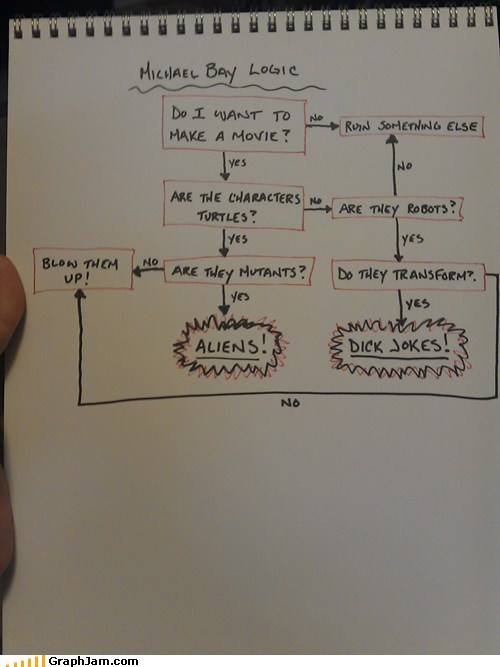 MICHAEL BAY LOGIC
DO I WANT TO
MAKE A MOVIE?
NO
RUIN SOMETHING ELSE
YES
NO
ARE THE CHARACTERS
TURTLES?
NO
ARE THEY ROBOTS?
YES
YES
BLOW THEM
UP!
NO
ARE THEY MUTANTS?
DO THEY TRANSFORM?
YES
YES
ALIENS!
DICK JOKES!
NO
GraphJam.com